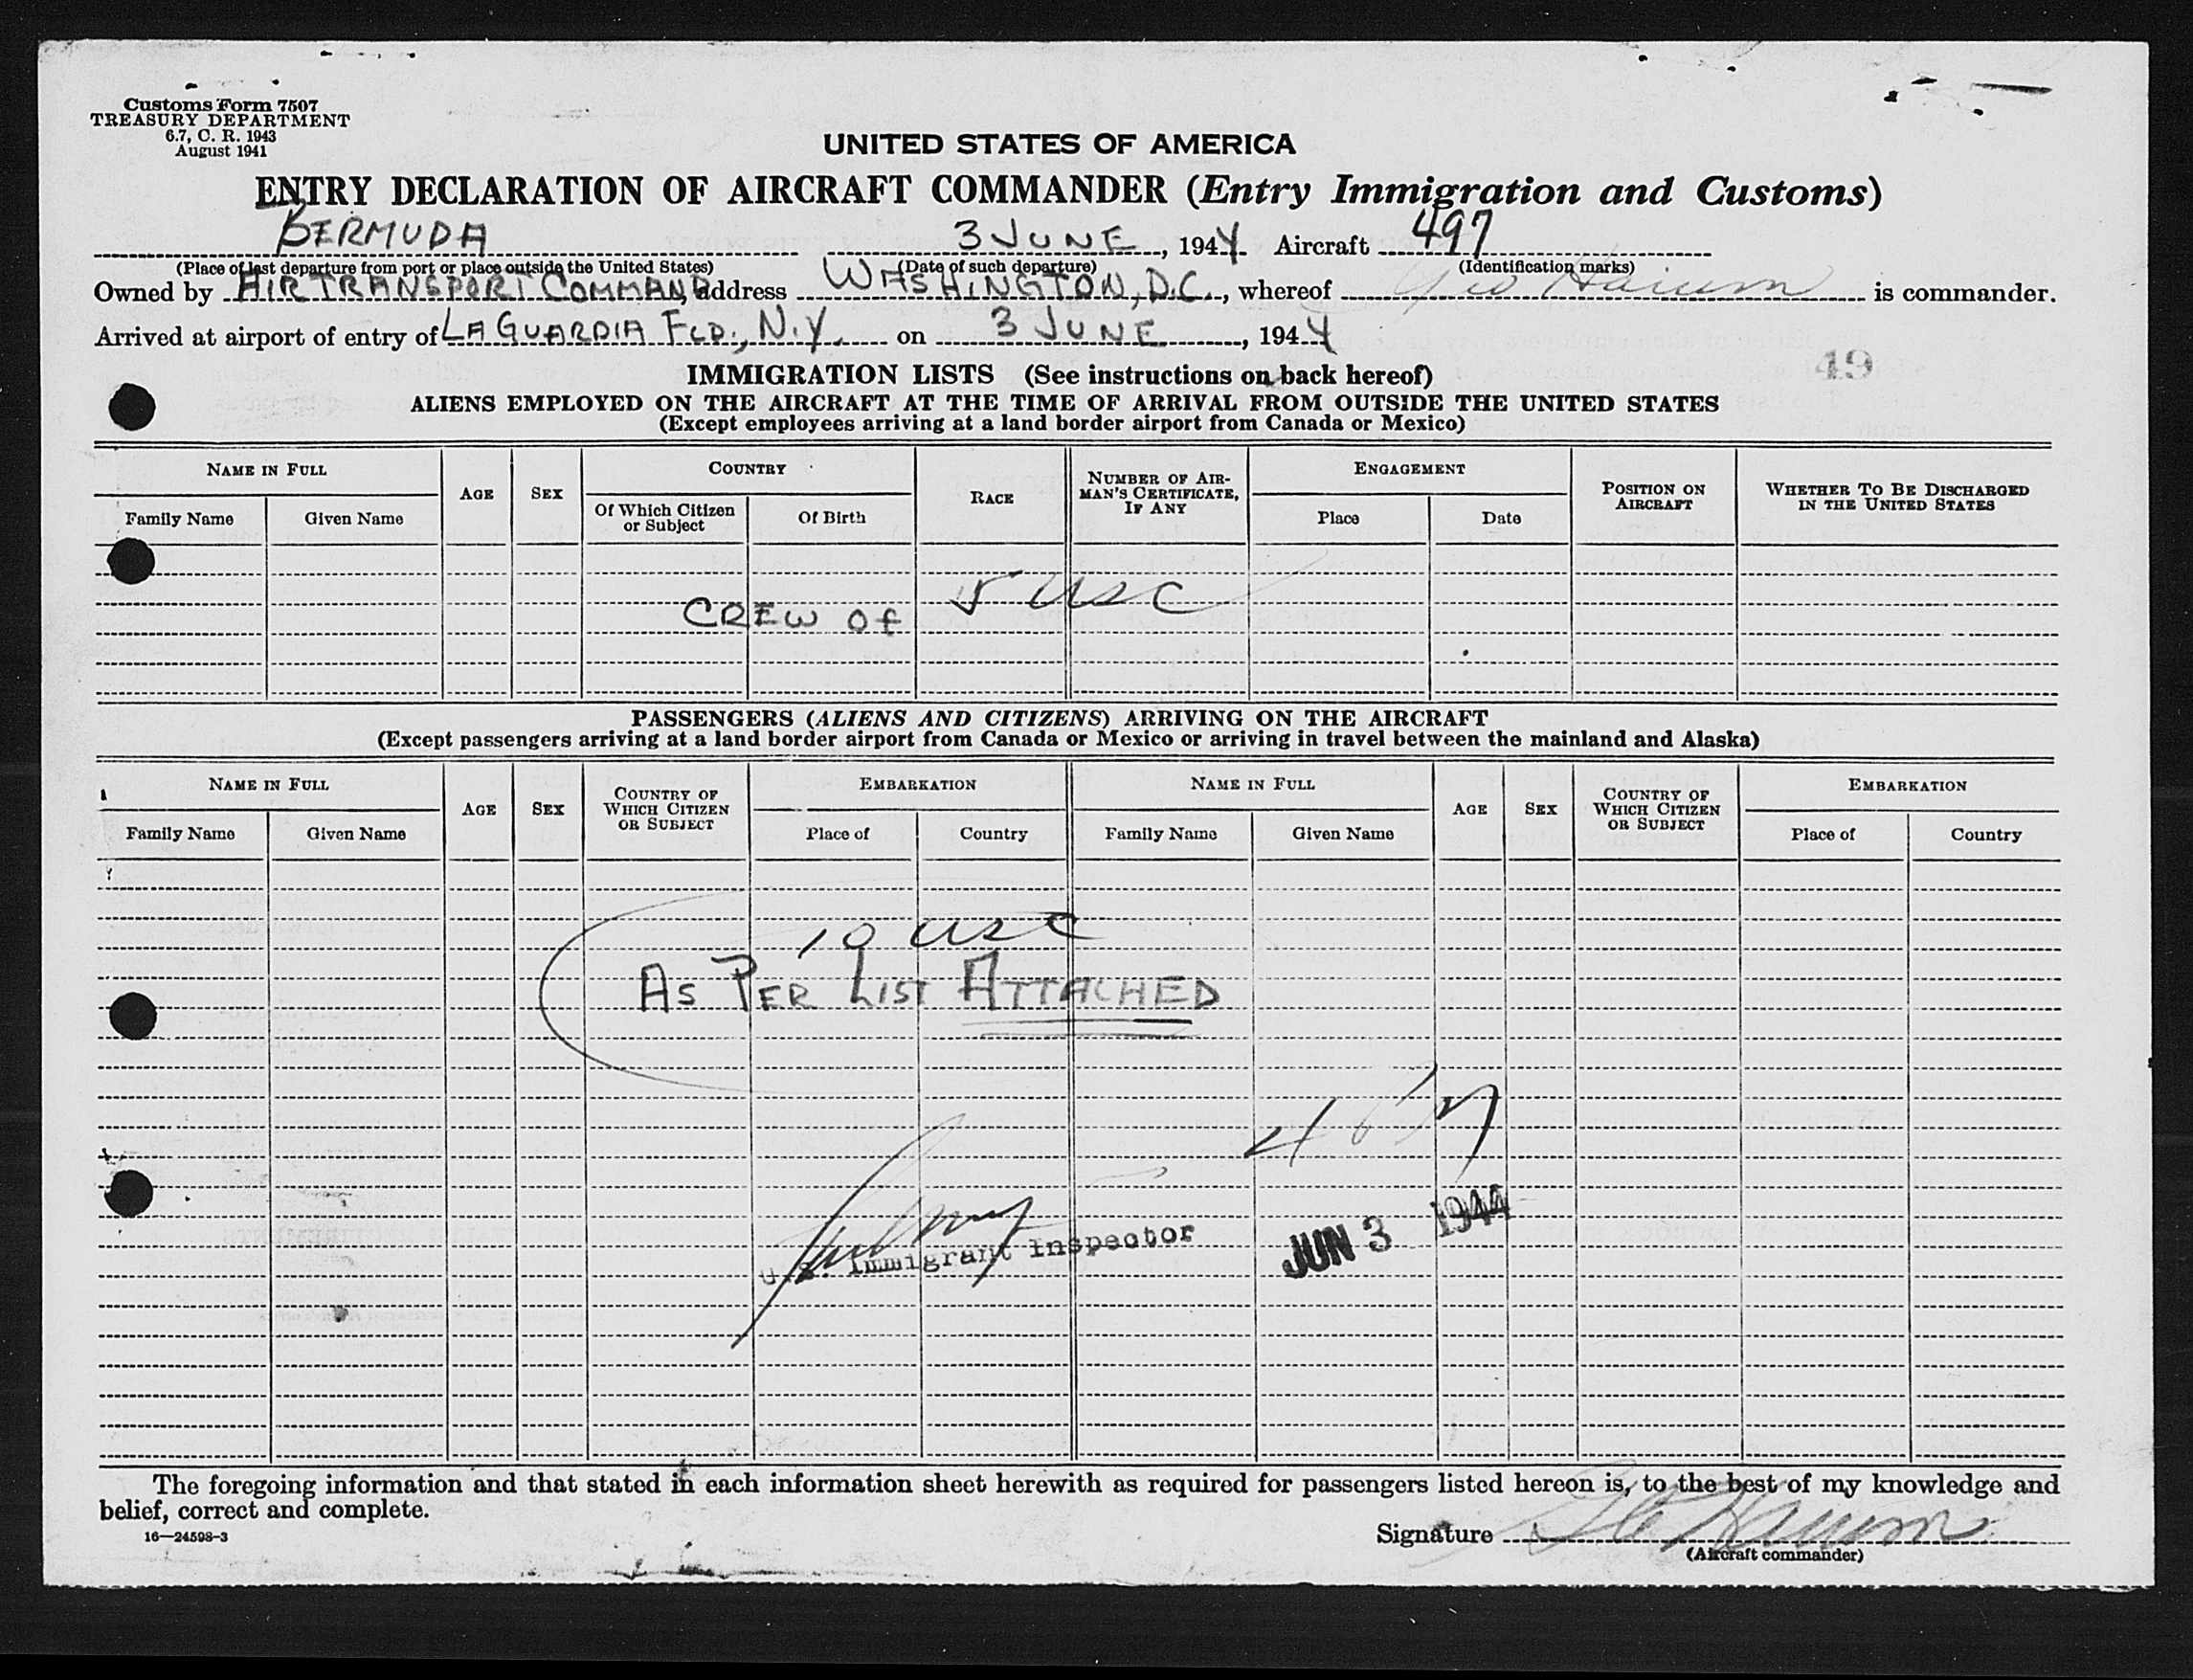 Customs Form 7507
TREASURY DEPARTMENT
6.7, C. R. 1943
August 1941
UNITED STATES OF AMERICA
ENTRY DECLARATION OF AIRCRAFT COMMANDER (Entry Immigration and Customs)
BERMUDA 3 JUNE, 1944 Aircraft 497
(Place of last departure from port or place outside the United States) (Date of such departure) (Identification marks)
Owned by AIR TRANSPORT COMMAND, address WASHINGTON, D.C., whereof Geo is commander.
Arrived at airport of entry of LA GUARDIA FLD., N.Y. on 3 JUNE, 1944
49
IMMIGRATION LISTS (See instructions on back hereof)
ALIENS EMPLOYED ON THE AIRCRAFT AT THE TIME OF ARRIVAL FROM OUTSIDE THE UNITED STATES
(Except employees arriving at a land border airport from Canada or Mexico)
NAME IN FULL AGE SEX COUNTRY RACE NUMBER OF AIRMAN'S CERTIFICATE, IF ANY ENGAGEMENT POSITION ON AIRCRAFT WHETHER TO BE DISCHARGED IN THE UNITED STATES
Family Name Given Name Of Which Citizen or Subject Of Birth Place Date
CREW OF 5 USC
PASSENGERS (ALIENS AND CITIZENS) ARRIVING ON THE AIRCRAFT
(Except passengers arriving at a land border airport from Canada or Mexico or arriving in travel between the mainland and Alaska)
NAME IN FULL AGE SEX COUNTRY OF WHICH CITIZEN OR SUBJECT EMBARKATION NAME IN FULL AGE SEX COUNTRY OF WHICH CITIZEN OR SUBJECT EMBARKATION
Family Name Given Name Place of Country Family Name Given Name Place of Country
10 USC
AS PER LIST ATTACHED
U.S. Immigrant Inspector JUN 3 1944
The foregoing information and that stated in each information sheet herewith as required for passengers listed hereon is, to the best of my knowledge and
belief, correct and complete.
16—24598-3
Signature
(Aircraft commander)